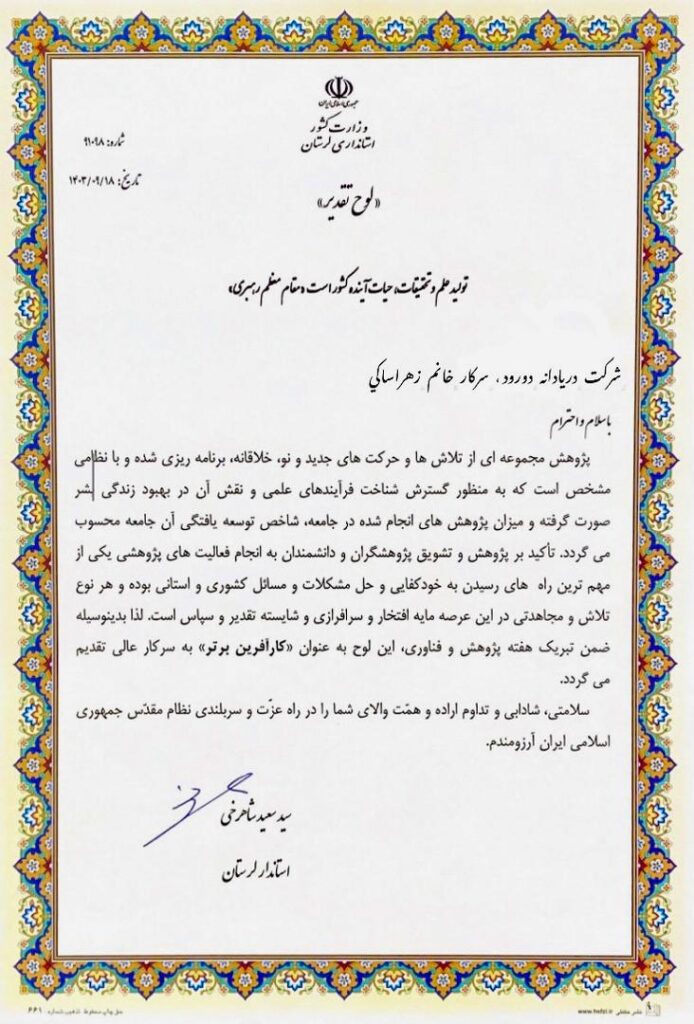 جمهوری اسلامی ایران
وزارت کشور
استانداری لرستان
شماره: ۹۱۰۹۸
تاریخ: ۱۴۰۳/۰۹/۱۸
«لوح تقدیر»
تولید علم و تحقیقات، حیات آینده کشور است «مقام معظم رهبری»
شرکت دریادانه دورود، سرکار خانم زهراساکي
باسلام و احترام
پژوهش مجموعه ای از تلاش ها و حرکت های جدید و نو، خلاقانه، برنامه ریزی شده و با نظامی
مشخص است که به منظور گسترش شناخت فرآیندهای علمی و نقش آن در بهبود زندگی بشر
صورت گرفته و میزان پژوهش های انجام شده در جامعه، شاخص توسعه یافتگی آن جامعه محسوب
می گردد. تأکید بر پژوهش و تشویق پژوهشگران و دانشمندان به انجام فعالیت های پژوهشی یکی از
مهم ترین راه های رسیدن به خودکفایی و حل مشکلات و مسائل کشوری و استانی بوده و هر نوع
تلاش و مجاهدتی در این عرصه مایه افتخار و سرافرازی و شایسته تقدیر و سپاس است. لذا بدینوسیله
ضمن تبریک هفته پژوهش و فناوری، این لوح به عنوان «کارآفرین برتر» به سرکار عالی تقدیم
می گردد.
سلامتی، شادابی و تداوم اراده و همّت والای شما را در راه عزّت و سربلندی نظام مقدّس جمهوری
اسلامی ایران آرزومندم.
سید سعید شاهرخی
استاندار لرستان
حق چاپ محفوظ - تذهیب شماره: ۶۶۱
نشر حافظی www.hefzi.ir